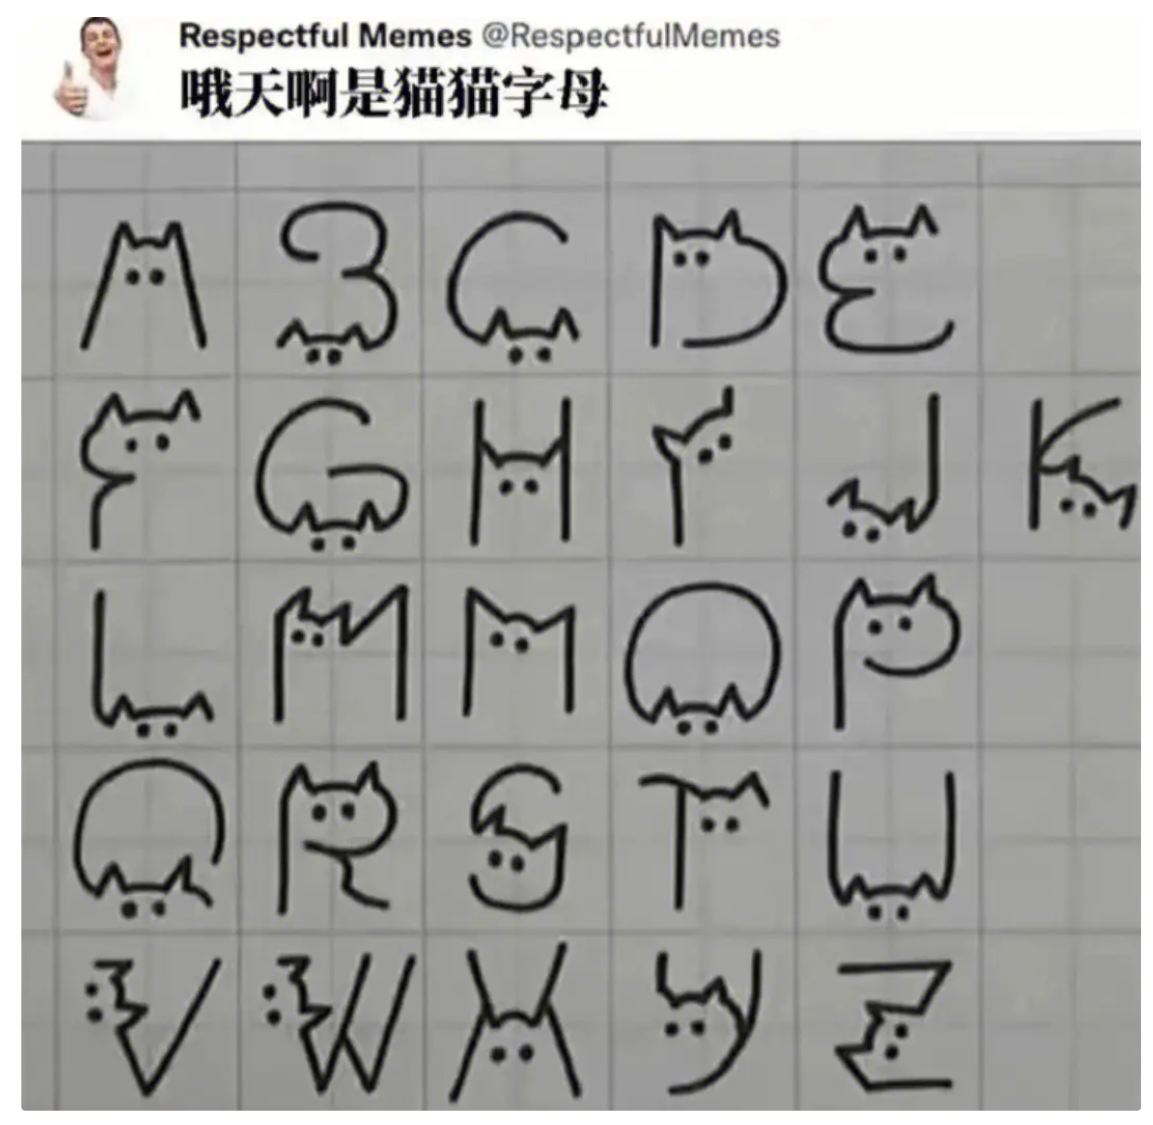 Respectful Memes @RespectfulMemes
哦天啊是猫猫字母
A B C D E
F G H I J K
L M N O P
Q R S T U
V W X Y Z